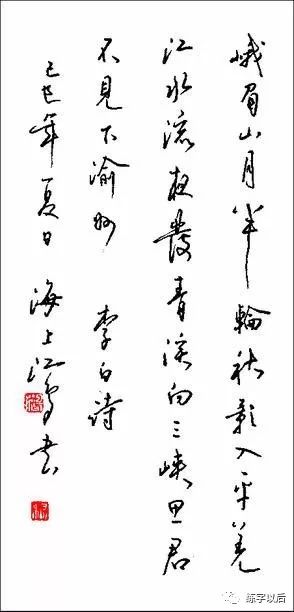 峨眉山月半輪秋影入平羌
江水流夜發青溪向三峽思君
不見下渝州 李白詩
己巳年夏日 海上江鸟书
练字以后